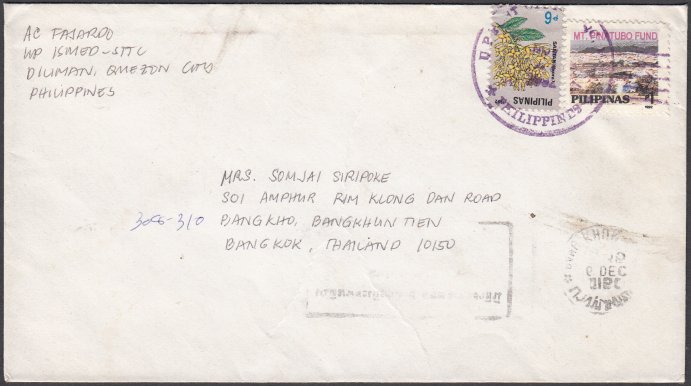 AC FAJARDO
UP ISMED-STTC
DILIMAN, QUEZON CITY
PHILIPPINES
9d
PILIPINAS
MT. PINATUBO FUND
PILIPINAS
1
U.P.
PHILIPPINES
MRS. SOMJAI SIRIPOKE
SOI AMPHUR RIM KLONG DAN ROAD
306-310
BANGKHO, BANGKHUNTIEN
BANGKOK, THAILAND 10150
DEC